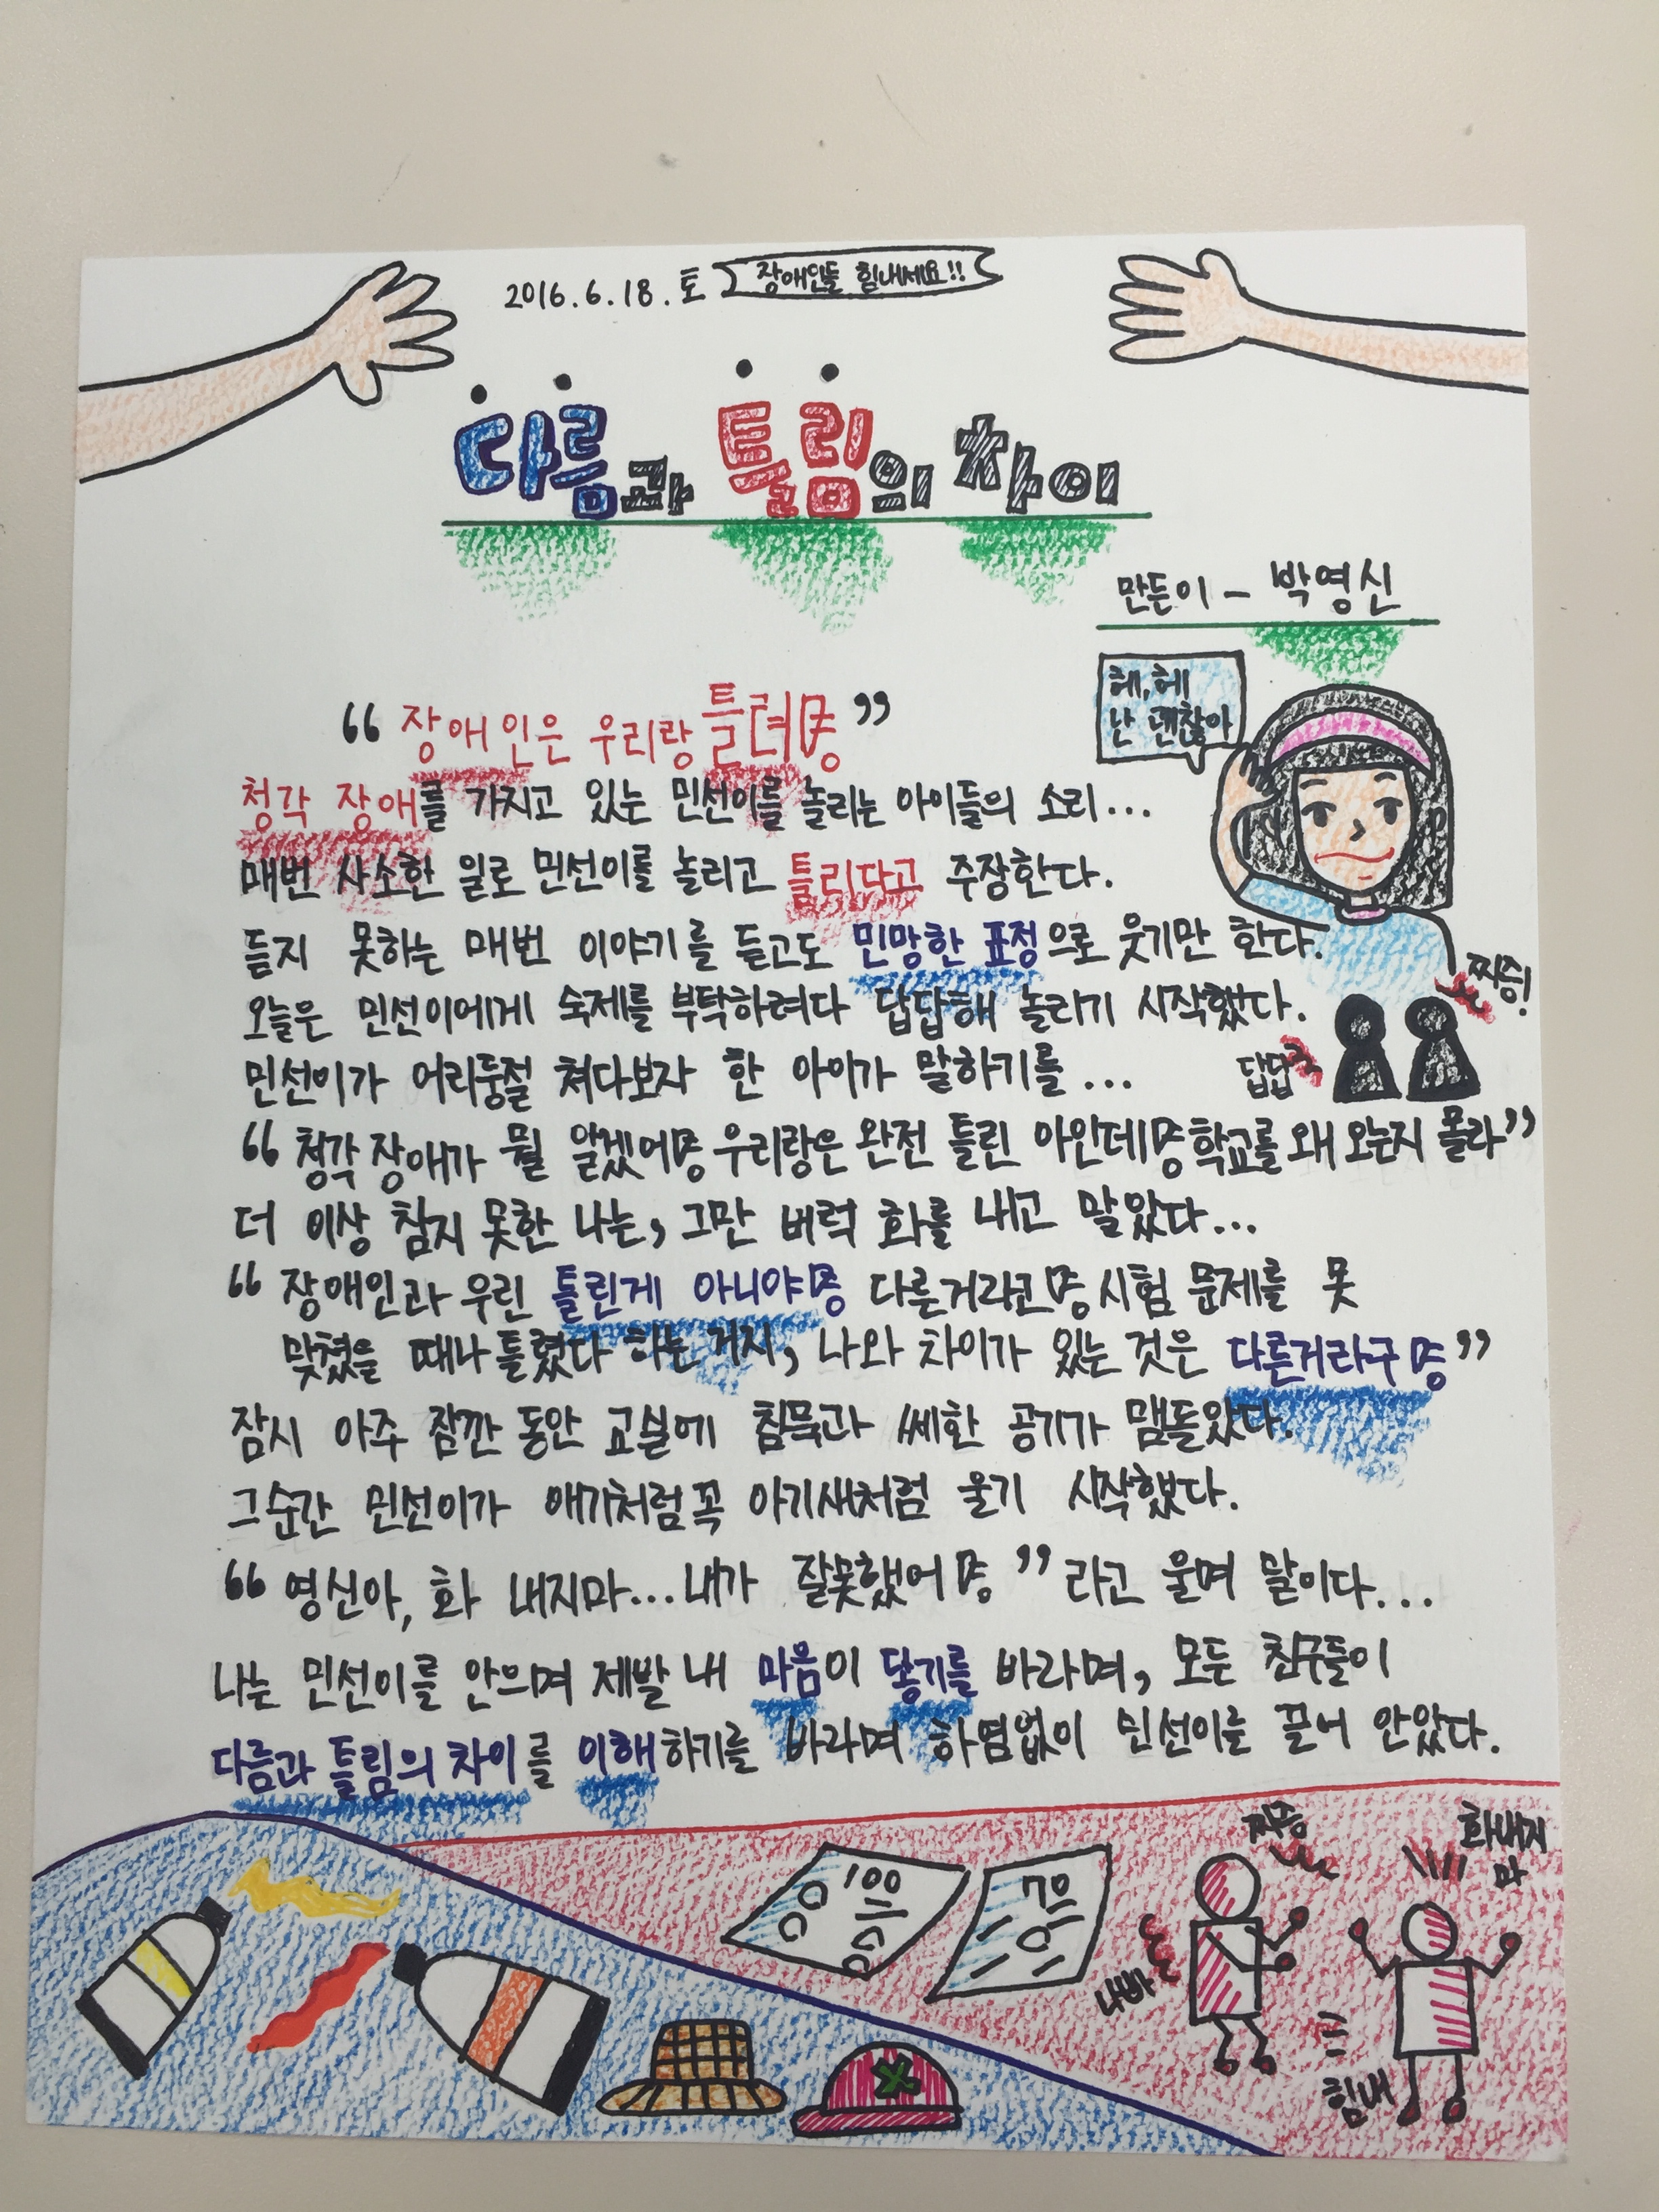 2016.6.18.토 장애인들 힘내세요!!
다름과 틀림의 차이
만든이 - 박영신
헤,헤
난 괜찮아
“장애인은 우리랑 틀려!!”
청각 장애를 가지고 있는 민선이를 놀리는 아이들의 소리...
매번 사소한 일로 민선이를 놀리고 틀리다고 주장한다.
듣지 못하는 매번 이야기를 듣고도 민망한 표정으로 웃기만 한다.
오늘은 민선이에게 숙제를 부탁하려다 답답해 놀리기 시작했다.
찌증!
민선이가 어리둥절 쳐다보자 한 아이가 말하기를...
답답
“청각 장애가 뭘 알겠어!! 우리랑은 완전 틀린 아인데!! 학교를 왜 오는지 몰라”
더 이상 참지 못한 나는, 그만 버럭 화를 내고 말았다...
“장애인과 우린 틀린게 아니야!! 다른거라고!! 시험 문제를 못
맞췄을 때나 틀렸다 하는 거지, 나와 차이가 있는 것은 다른거라구!!”
잠시 아주 잠깐 동안 교실에 침묵과 쎄한 공기가 맴돌았다.
그순간 민선이가 애기처럼 꼭 아기새처럼 울기 시작했다.
“영신아, 화 내지마...내가 잘못했어!!”라고 울며 말이다...
나는 민선이를 안으며 제발 내 마음이 닿기를 바라며, 모든 친구들이
다름과 틀림의 차이를 이해하기를 바라며 하염없이 민선이를 끌어 안았다.
100
70
짜증
화내지
마
나빠
힘내